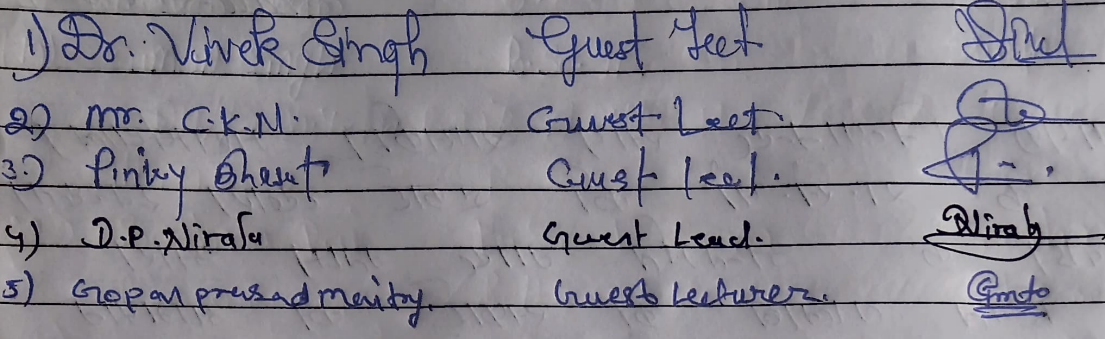 1) Dr. Vivek Singh Guest Lect
2) Mr. C.K.N. Guest Lect.
3.) Pinky Bharti Guest Lect.
4) D.P. Nirala Guest Lect. Nirala
5) Gopal prasad maity. Guest Lecturer.